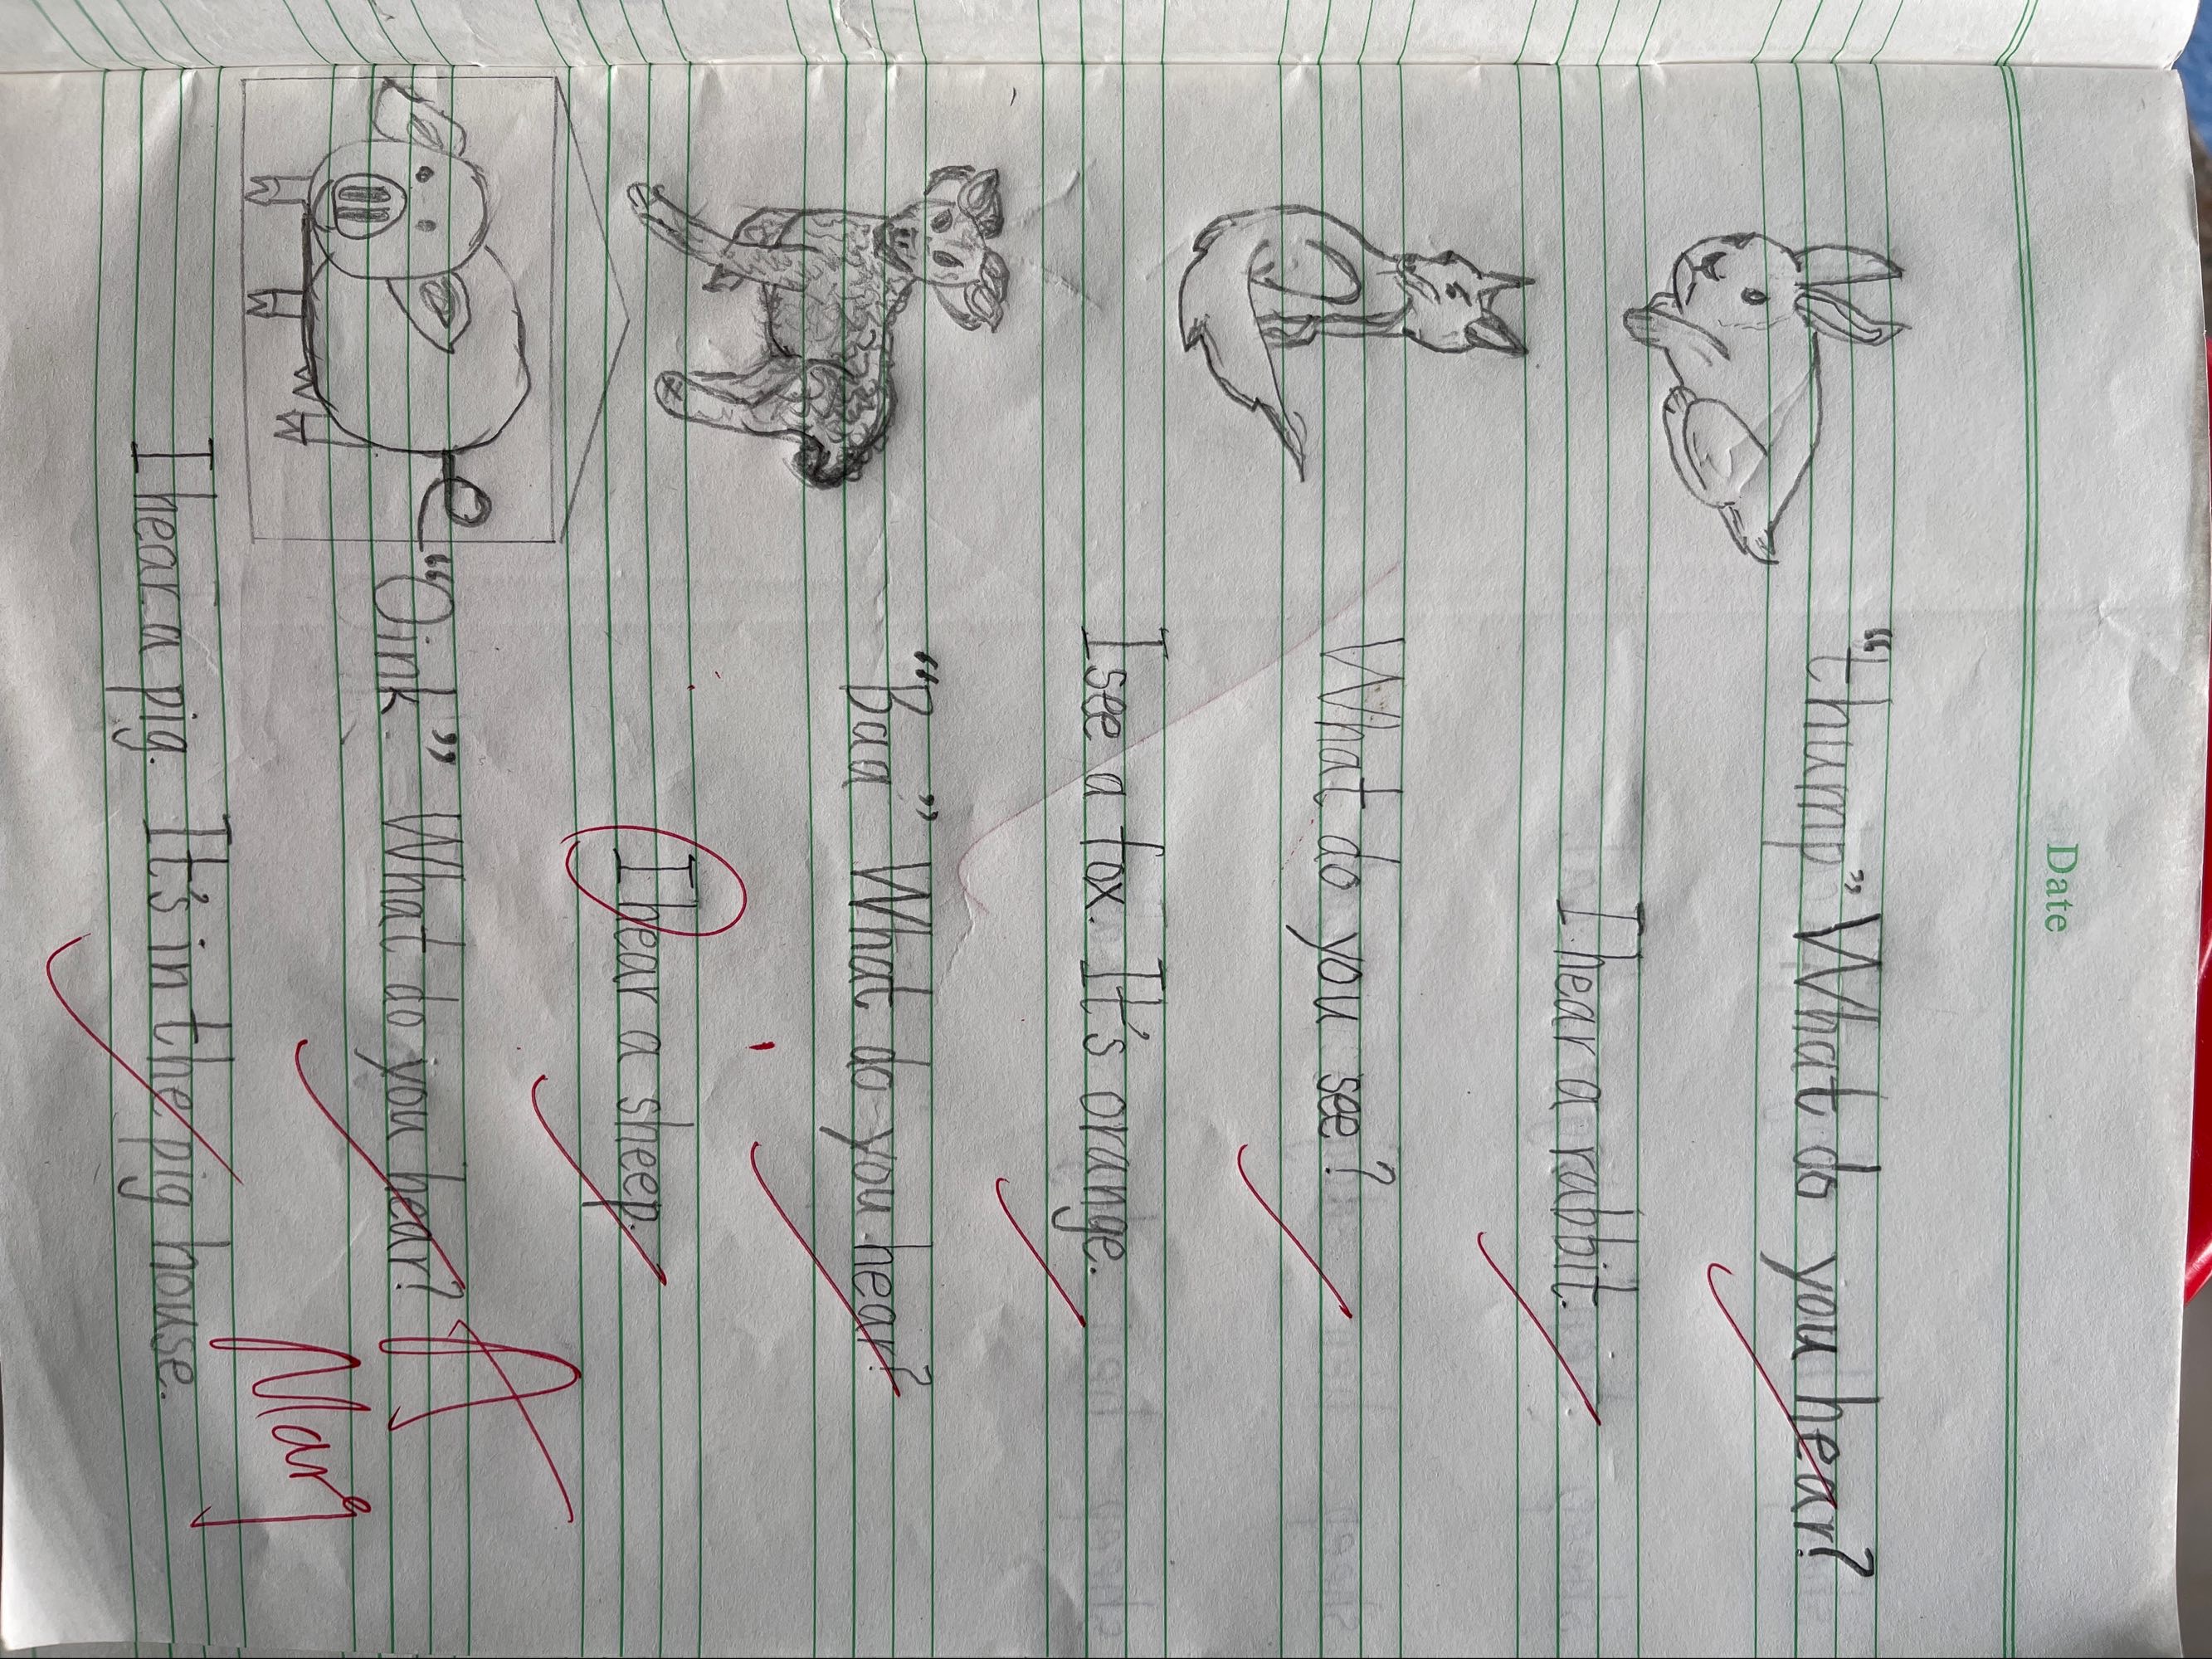 Date
“thump” What do you hear?
I hear a rabbit.
What do you see?
I see a fox. It's orange.
“Baa” What do you hear?
I hear a sheep.
“Oink” What do you hear?
I hear a pig. It's in the pig house.
A